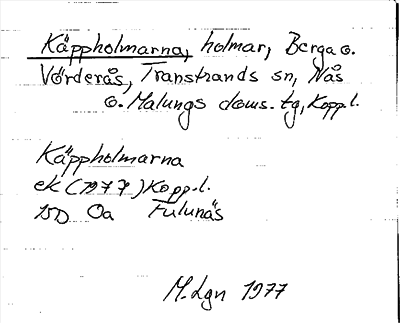 Käppholmarna, holmar, Berga o.
Vörderås, Transtrands sn, Nås
o. Malungs doms. tg, Kopp.l.
Käppholmarna
ek (1977) Kopp.l.
15D Oa Fulunäs
M. Lgn 1977